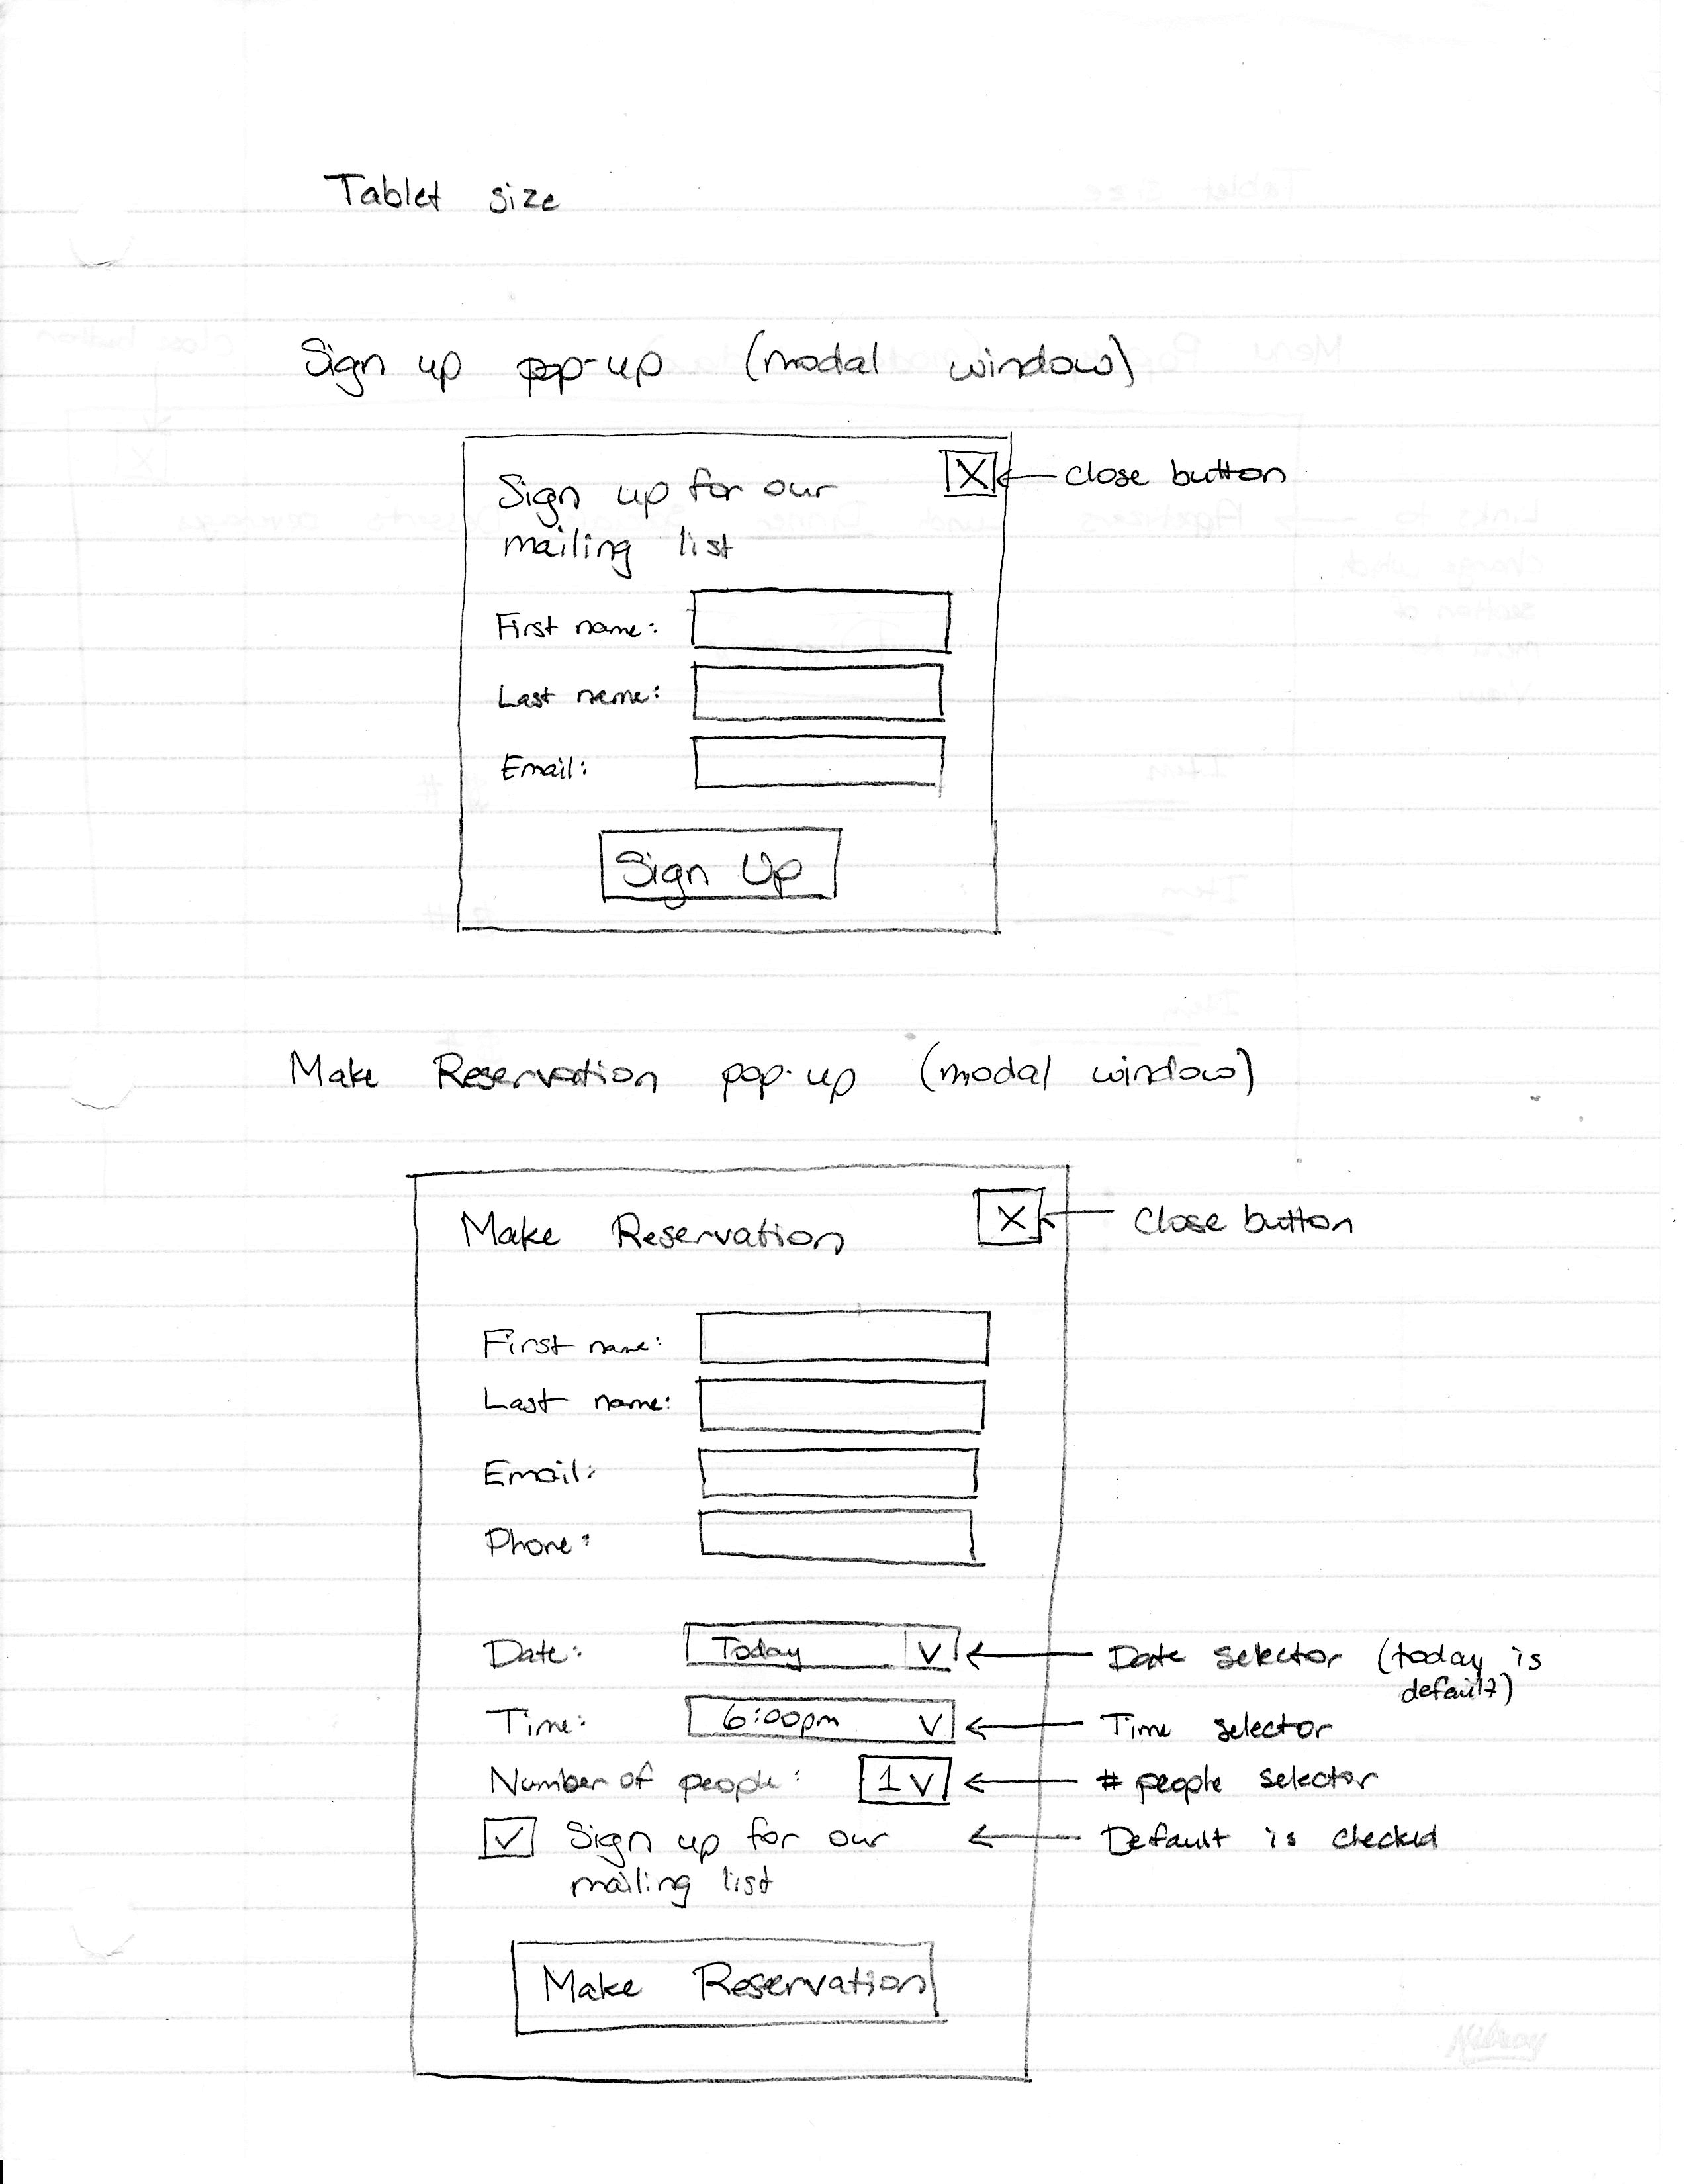 Tablet size
Sign up pop-up (modal window)
X
close button
Sign up for our
mailing list
First name:
Last name:
Email:
Sign Up
Make Reservation pop-up (modal window)
Make Reservation
X
Close button
First name:
Last name:
Email:
Phone:
Date: Today V Date selector (today is
default)
Time: 6:00pm V Time selector
Number of people: 1 V # people selector
Sign up for our Default is checked
mailing list
Make Reservation